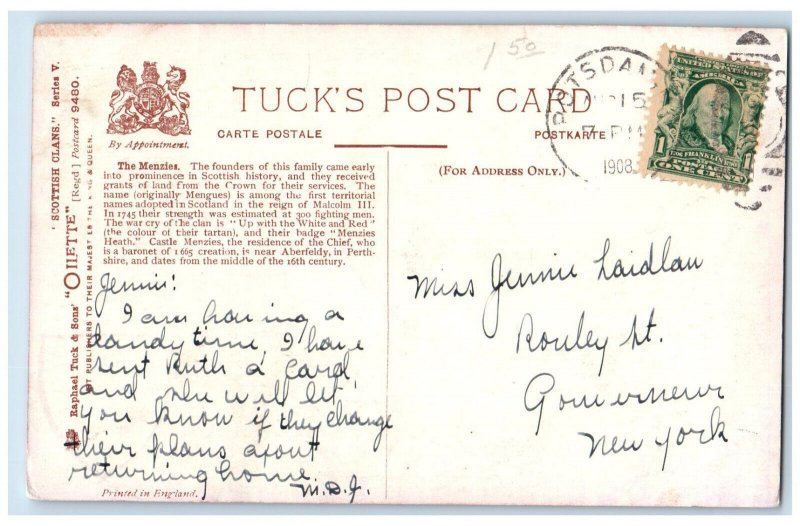 1 50
TUCK'S POST CARD
CARTE POSTALE
POSTKARTE
By Appointment.
(FOR ADDRESS ONLY.)
POTSDAM
15
7 PM
1908
UNITED STATES OF
AMERICA
1 FRANKLIN 1
POSTAGE
ONE CENT
"SCOTTISH CLANS." Series V.
Raphael Tuck & Sons' "OILETTE" [Regd] Postcard 9480.
PUBLISHERS TO THEIR MAJESTIES THE KING & QUEEN.
The Menzies. The founders of this family came early
into prominence in Scottish history, and they received
grants of land from the Crown for their services. The
name (originally Mengues) is among the first territorial
names adopted in Scotland in the reign of Malcolm III.
In 1745 their strength was estimated at 300 fighting men.
The war cry of the clan is "Up with the White and Red"
(the colour of their tartan), and their badge "Menzies
Heath." Castle Menzies, the residence of the Chief, who
is a baronet of 1665 creation, is near Aberfeldy, in Perth-
shire, and dates from the middle of the 16th century.
Jennie!
I am having a
dandy time, I have
sent Ruth a card,
and she will let
you know if they change
their plans about
returning home.
M.D.J.
Miss Jennie Laidlaw
Rouley St.
Gouverneur
New York
Printed in England.